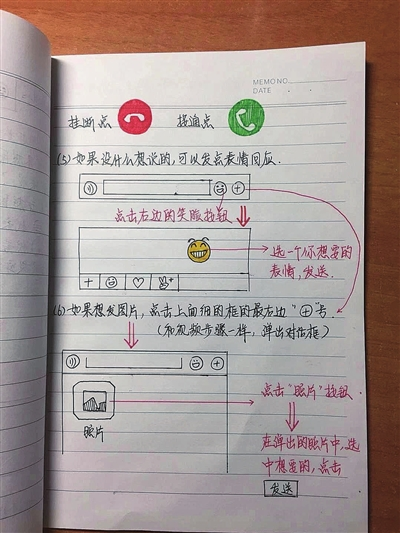 MEMO NO.
DATE
挂断点 接通点
(5)如果没什么想说的,可以发点表情回应.
点击右边的笑脸按钮
选一个你想要的
表情,发送.
(6)如果想发图片,点击上面细的框的最右边"⊕"号.
(和视频步骤一样,弹出对话框)
照片
点击"照片"按钮
在弹出的照片中,选
中想要的,点击
发送